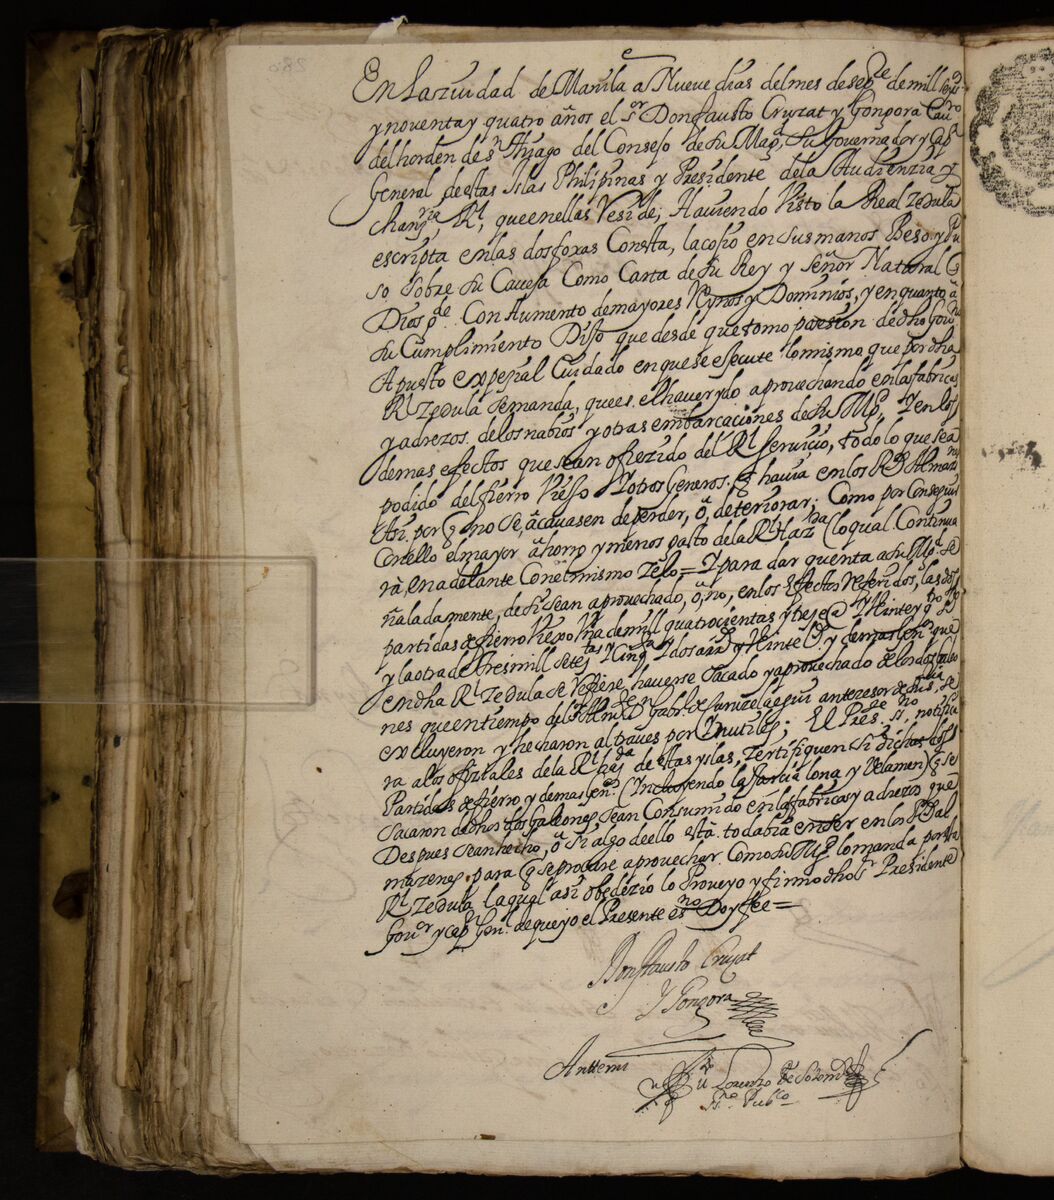 En la ziudad de Manila a Nueve dias del mes de sepre de mill seiso
y noventa y quatro años el sr Don fausto Cruzat y Gongora Cauro
del horden de sn Thiago del Consejo de su Magd, su Governador y Capn
General de estas Islas Philipinas y Presidente de la Audienzia y
chanzria Rl, que en ellas Reside; Haviendo Visto la Real Zedula
escripta en las dos foxas Consta, la cojio en sus manos Beso y Pu
so, sobre su Caveza Como Carta de su Rey y señor Natural q
Dios gde Con Aumento de mayores Rynos y Dominios, y en quanto a
su Cumplimiento Dijo que desde que tomo pocesion de dho Govno
A puesto expezial Cuidado en que se execute lo mismo que por dha
Rl Zedula se manda, que es el haver ydo aprovechando en las fabricas
y adrezos de los nabios y otras embarcaciones de su Mgd, Y en los
demas efectos que sean ofrezido del Rl servicio, todo lo que sea
podido del fierro Viejo Y otros Generos q havia en los Rs Almazns
Assi por q no se acavasen de perder, o deteriorar; Como por Conseguir
Con ello el mayor ahorro y menos gasto de la Rl Hazda (lo qual Continua
rà en adelante Con el mismo Zelo = Y para dar quenta a su Mgd se
ñaladamente, de si sean aprovechado, o, no, en los Efectos Referidos, las dos
partidas de fierro Viexo Una de mill quatrocientas y treze @ Y Veinte y qtro ls
y la otra de tresmill setetas y Cinqta y dos arrs y Veinte ls y demas Genos que
en dha Rl Zedula se Refiere, haverse sacado y aprovechado de los dos Galeo
nes que en tiempo del sr Almte Dn Gabl de Curuzelaegui antezesor de su sria, se
exlluyeron y hecharon al traves por Ynutiles; El Presste ssno, notifica
ra a los ofiziales de la Rl hazda de estas yslas, Zertifiquen si dichas dos
Partidas de fierro y demas Genos (Incluyendo la Jarcia lona y Velamen) q se
sacaron de dhos dos Galeones sean Consumido en las fabricas y adrezos que
Despues sean hecho, o si algo de ello està todabia en ser en los Rs Al
mazenes para q se procure aprovechar Como su Mgd lo manda por dha
Rl Zedula la qual assi obedezio lo Proveyo y firmo dho sr Presidente
Govor y Capn Genl de que yo el Presente esno Doy fee =
Don fausto Cruzat
Y Gongora
Antemi
Lorenzo de
sno Pubco